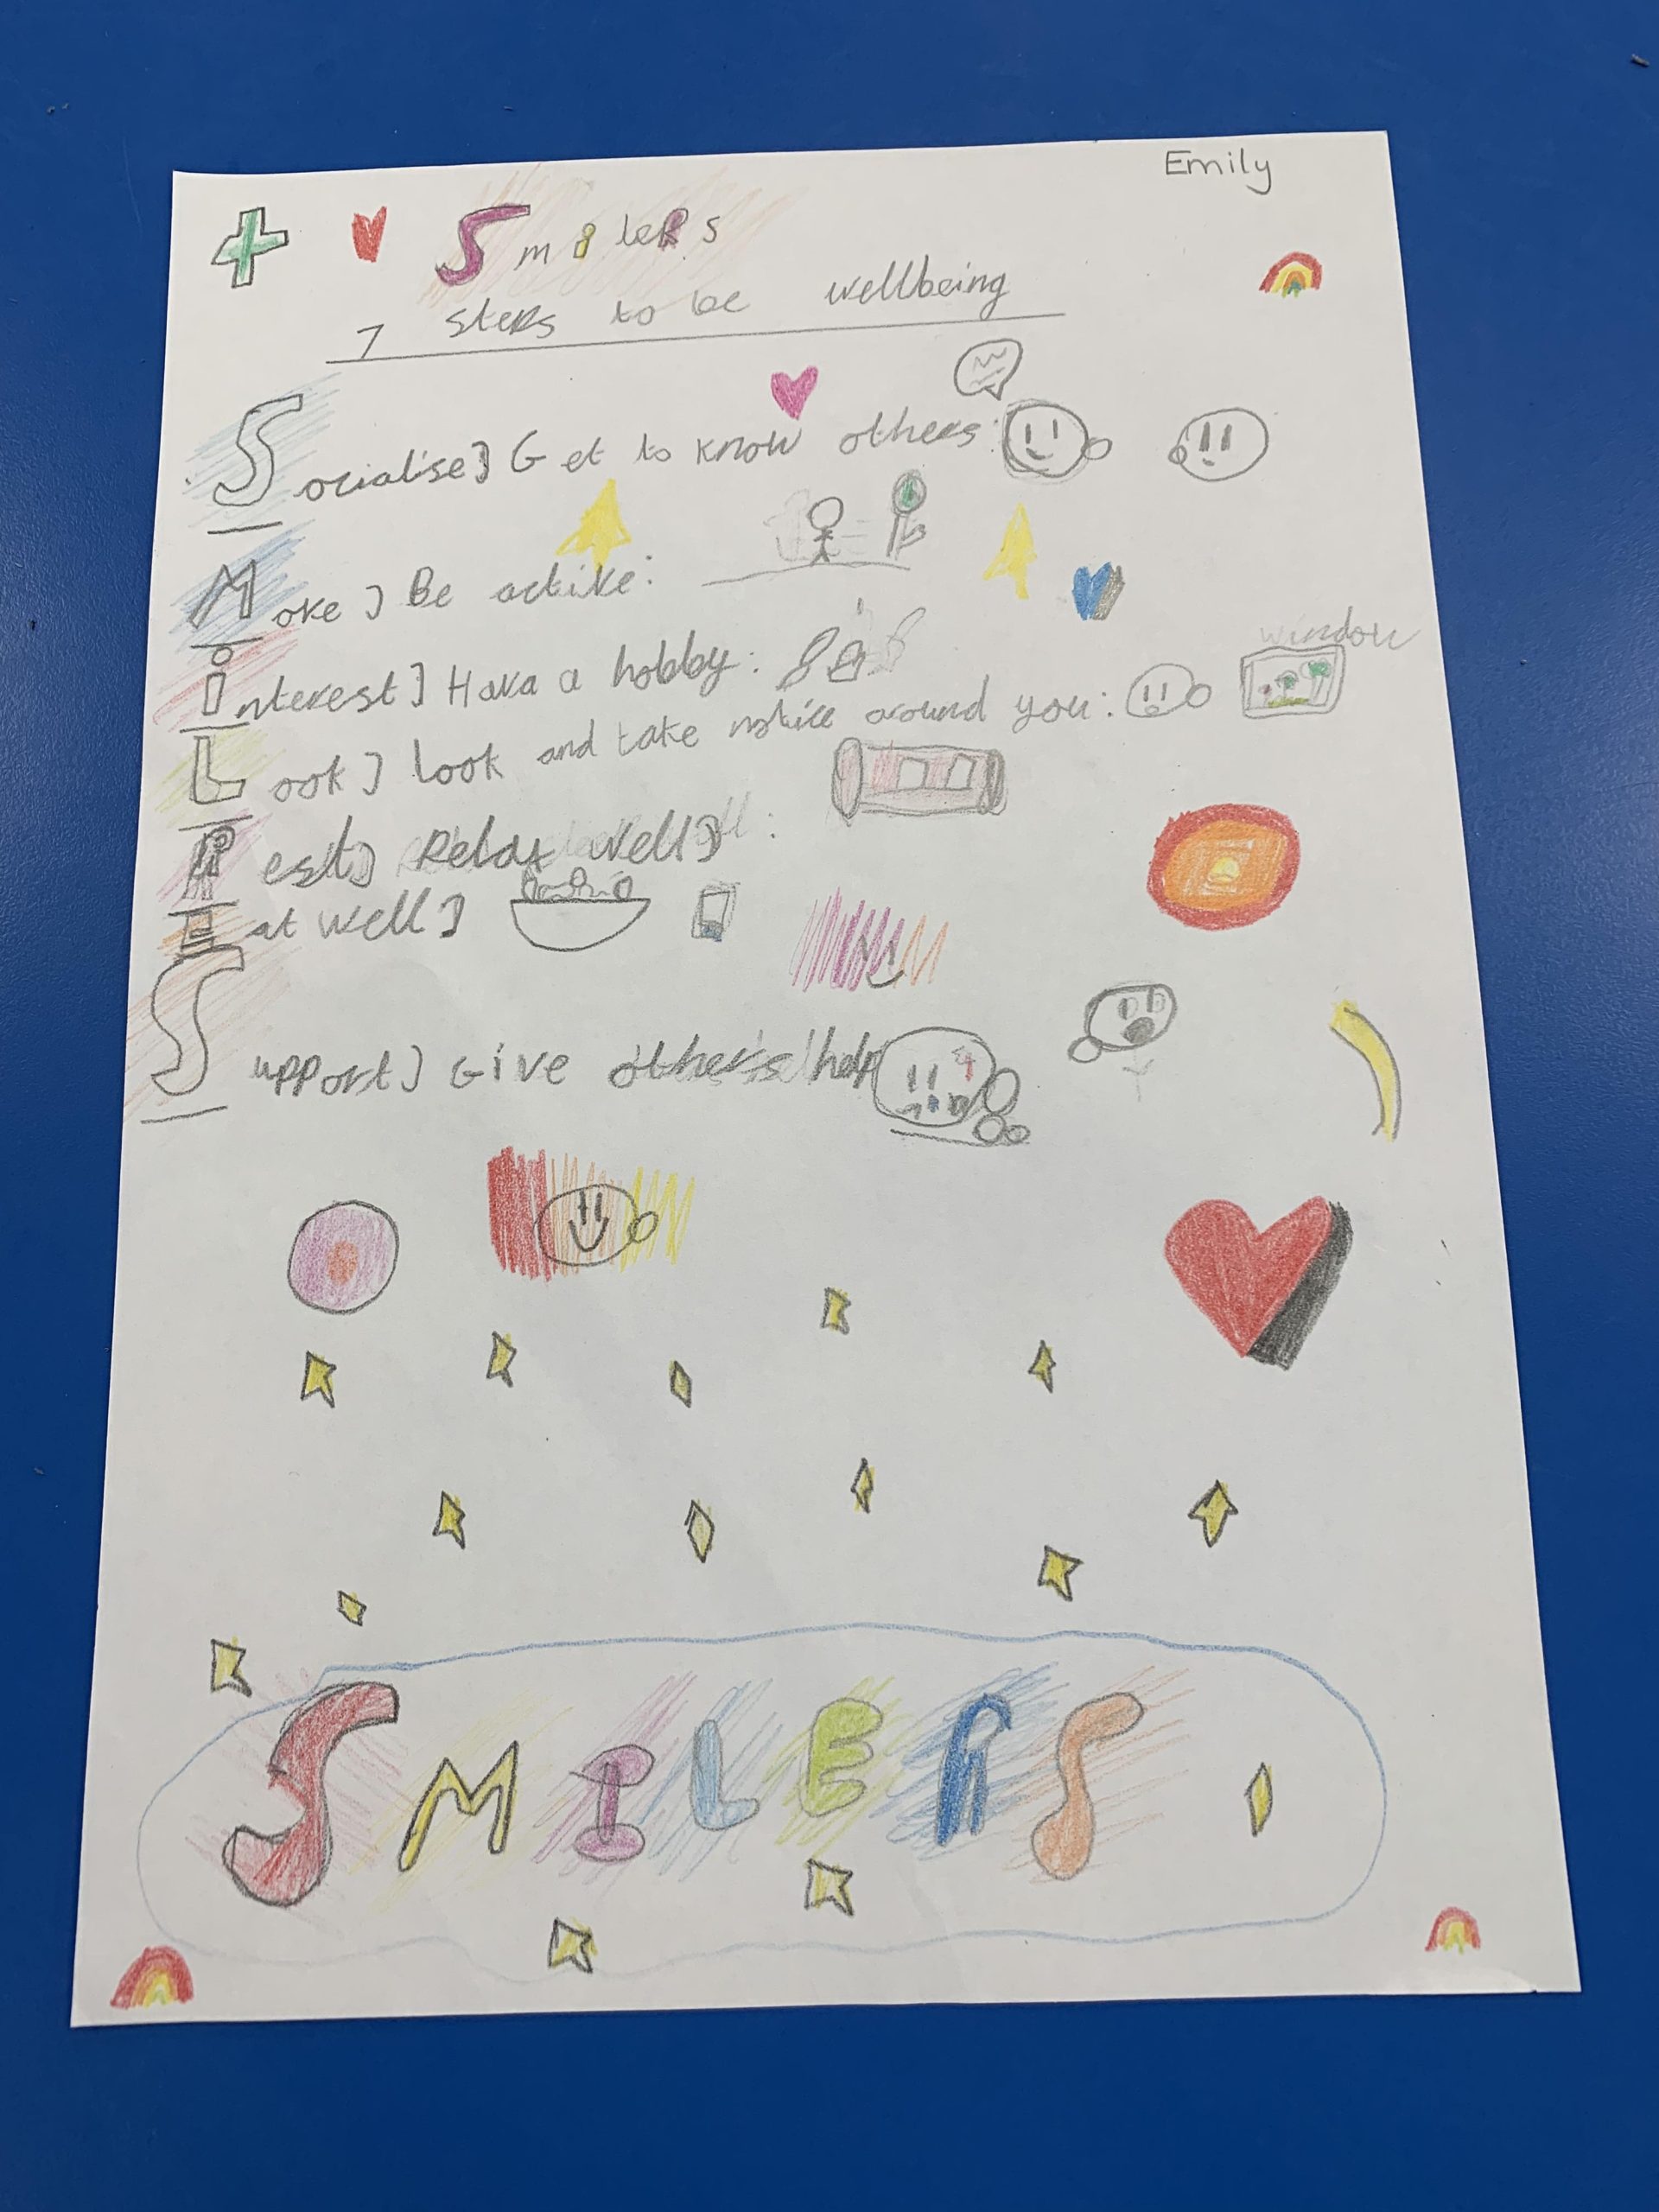 Emily
SmileRs
7 steps to be wellbeing
Socialise] Get to know others:
Move] Be active:
interest] Have a hobby:
window
Look] look and take notice around you:
Rest] Relax well]
Eat well]
Support] Give others help
SMILERS